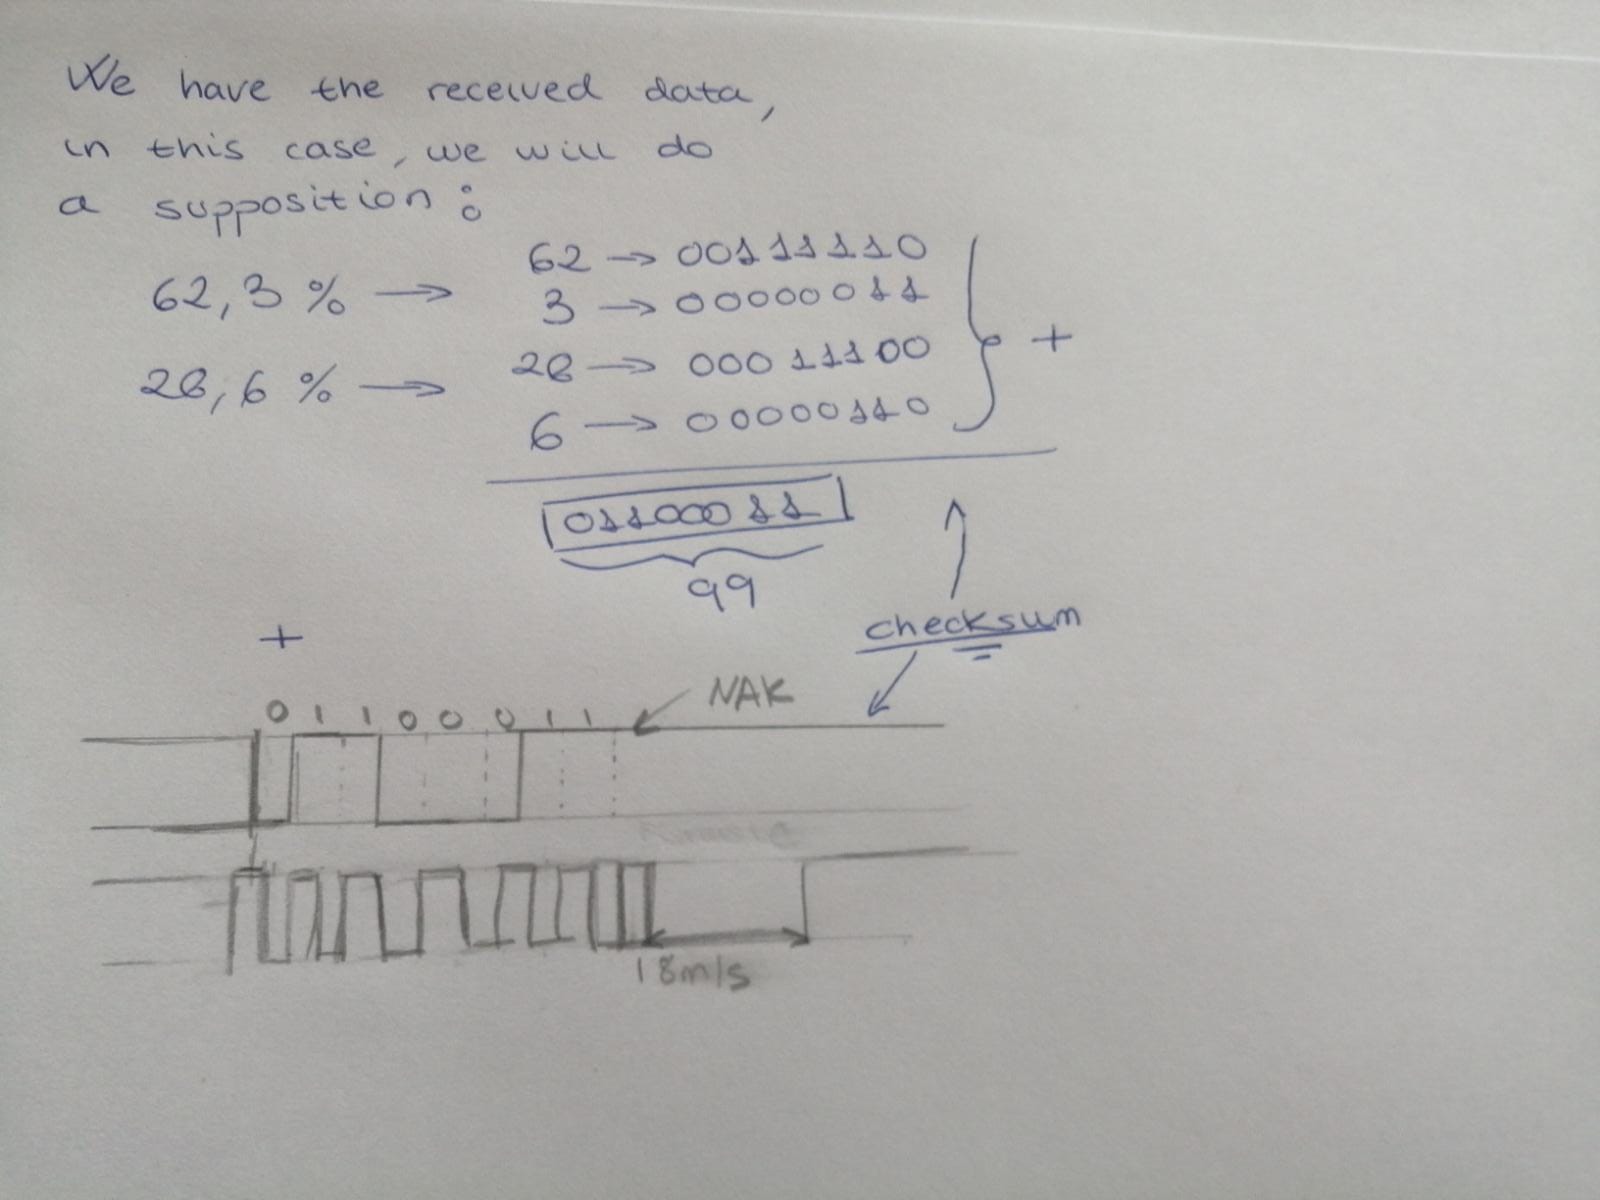 We have the received data,
in this case, we will do
a supposition:
62,3 % →
62 → 00111110
3 → 00000011
28,6 % →
28 → 00011100
6 → 00000110
+
01100011
99
checksum
+
0 1 1 0 0 0 1 1
NAK
18m/s